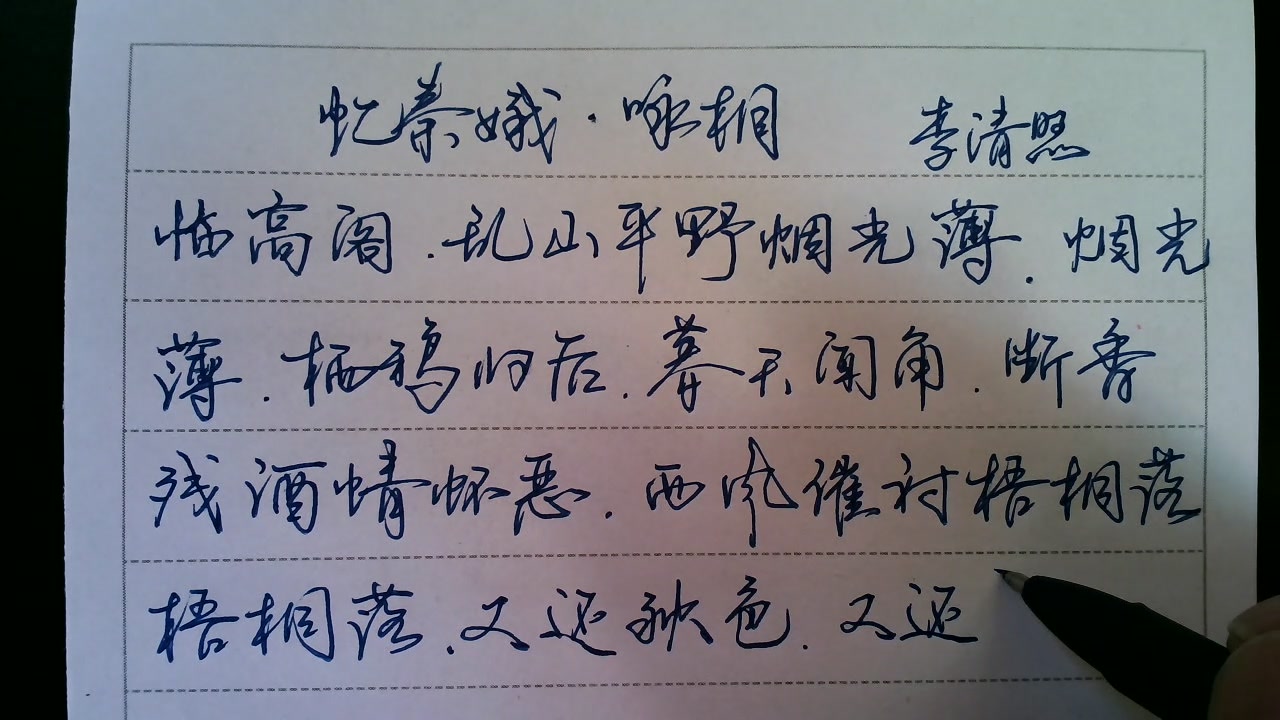 忆秦娥·咏桐 李清照
临高阁.乱山平野烟光薄.烟光
薄.栖鸦归后.暮天闻角.断香
残酒情怀恶.西风催衬梧桐落
梧桐落.又还秋色.又还